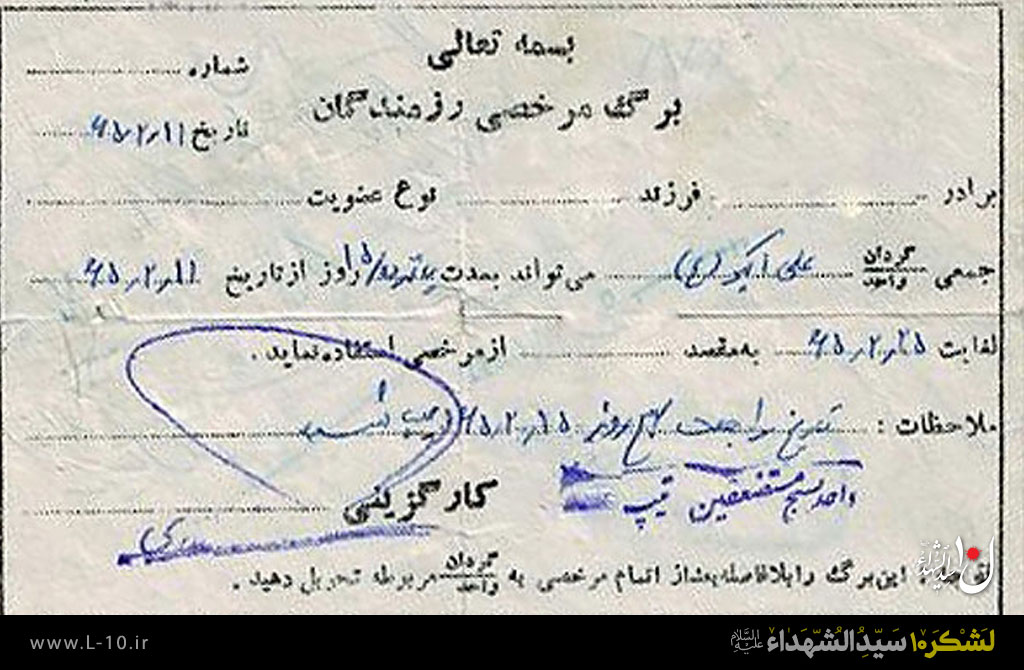 بسمه تعالی
شماره
برگ مرخصی رزمندگان
تاریخ ۶۵،۲،۱۱
برادر فرزند نوع عضویت
جمعی گردان واحد علی اکبر (ع) می‌تواند بمدت پانزده/۱۵ روز از تاریخ ۶۵،۲،۱۱
لغایت ۶۵،۲،۲۵ به‌مقصد از مرخصی استفاده نماید.
ملاحظات : تاریخ مراجعت صبح روز ۶۵،۲
واحد بسیج مستضعفین تیپ
کارگزینی
این برگ را بلافاصله بعد از اتمام مرخصی به گردان واحد مربوطه تحویل دهید.
www.L-10.ir
لشکر۱۰ سیدالشهداء علیه‌السلام